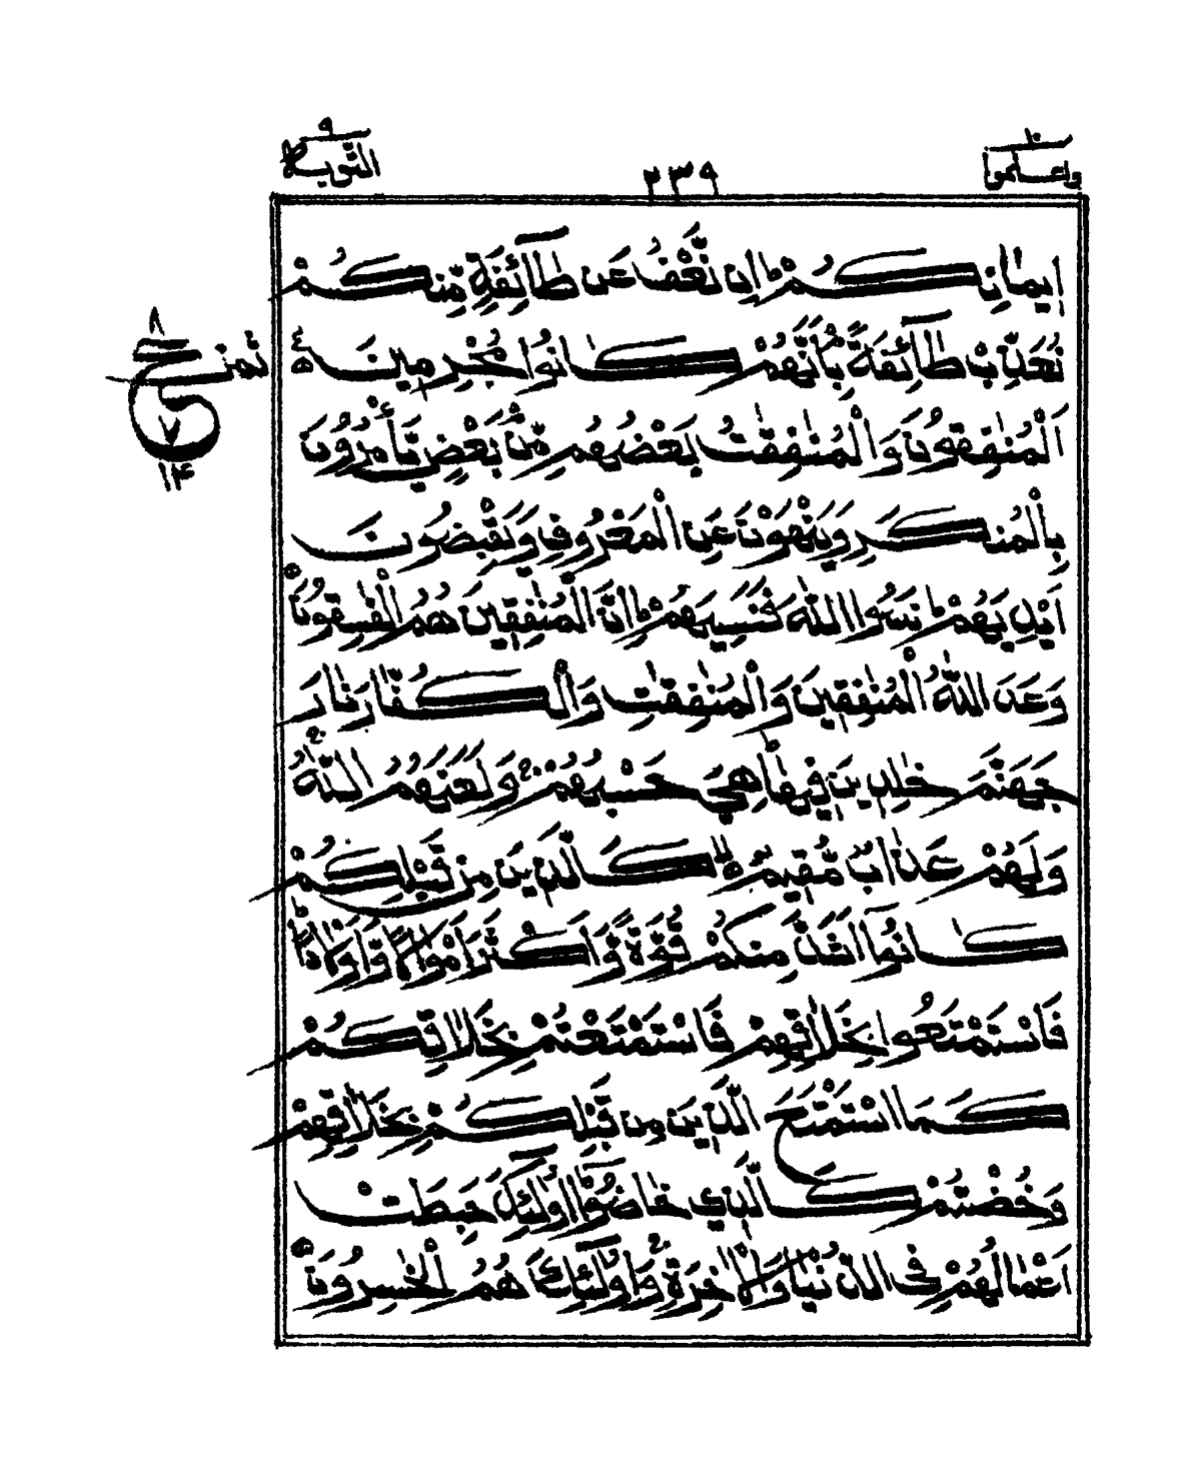 واعلموا ١٠
٢٣٩
التوبة ٩
إِيمَانِكُمْ ۚ إِن نَّعْفُ عَن طَآئِفَةٍ مِّنكُمْ
نُعَذِّبْ طَآئِفَةًۢ بِأَنَّهُمْ كَانُوا مُجْرِمِينَ
٨
ع
٧
١٤
اَلْمُنٰفِقُونَ وَالْمُنٰفِقٰتُ بَعْضُهُم مِّنۢ بَعْضٍ يَأْمُرُونَ
بِالْمُنكَرِ وَيَنْهَوْنَ عَنِ الْمَعْرُوفِ وَيَقْبِضُونَ
اَيْدِيَهُمْ ۚ نَسُوا اللّٰهَ فَنَسِيَهُمْ ۚ اِنَّ الْمُنٰفِقِينَ هُمُ الْفٰسِقُونَ
وَعَدَ اللّٰهُ الْمُنٰفِقِينَ وَالْمُنٰفِقٰتِ وَالْكُفَّارَ نَارَ
جَهَنَّمَ خٰلِدِينَ فِيهَا ۚ هِيَ حَسْبُهُمْ ۚ وَلَعَنَهُمُ اللّٰهُ ۚ
وَلَهُمْ عَذَابٌ مُّقِيمٌ ۙ كَالَّذِينَ مِن قَبْلِكُمْ
كَانُوٓا اَشَدَّ مِنكُمْ قُوَّةً وَّاَكْثَرَ اَمْوَالًا وَّاَوْلَادًا ۚ
فَاسْتَمْتَعُوا بِخَلَاقِهِمْ فَاسْتَمْتَعْتُمْ بِخَلَاقِكُمْ
كَمَا اسْتَمْتَعَ الَّذِينَ مِن قَبْلِكُمْ بِخَلَاقِهِمْ
وَخُضْتُمْ كَالَّذِي خَاضُوٓا ۚ اُولٰٓئِكَ حَبِطَتْ
اَعْمَالُهُمْ فِي الدُّنْيَا وَالْاٰخِرَةِ ۚ وَاُولٰٓئِكَ هُمُ الْخٰسِرُونَ